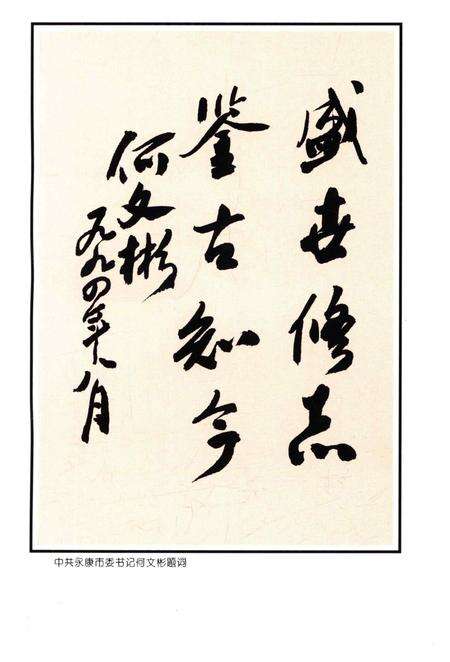 盛世修志
鉴古知今
何文彬
一九九四年八月
中共永康市委书记何文彬题词